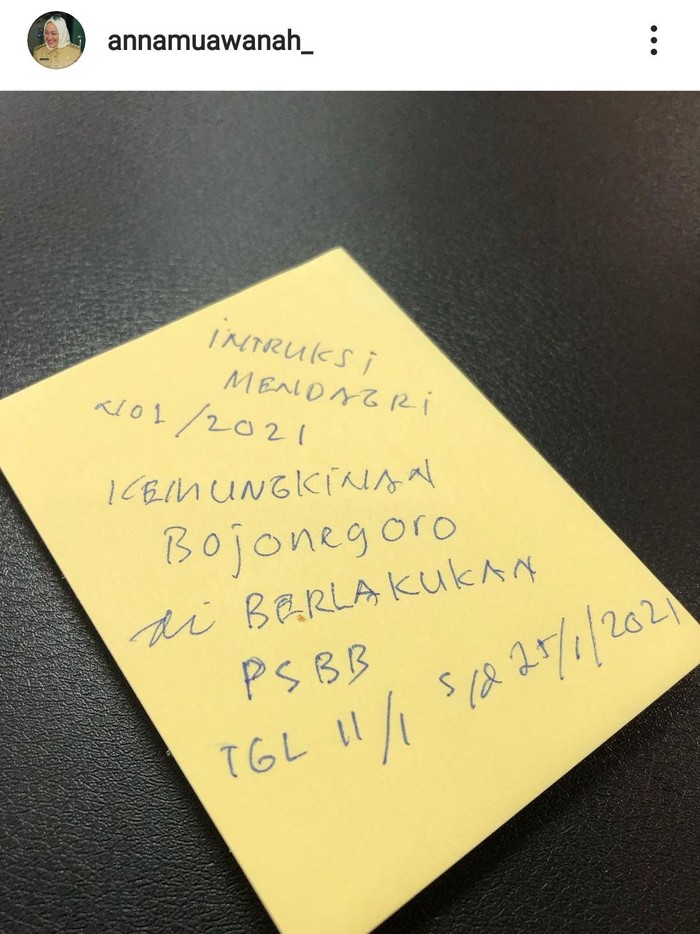 annamuawanah_
INTRUKSI
MENDAGRI
NO1/2021
KEMUNGKINAN
Bojonegoro
di BERLAKUKAN
PSBB
TGL 11/1 s/d 25/1/2021